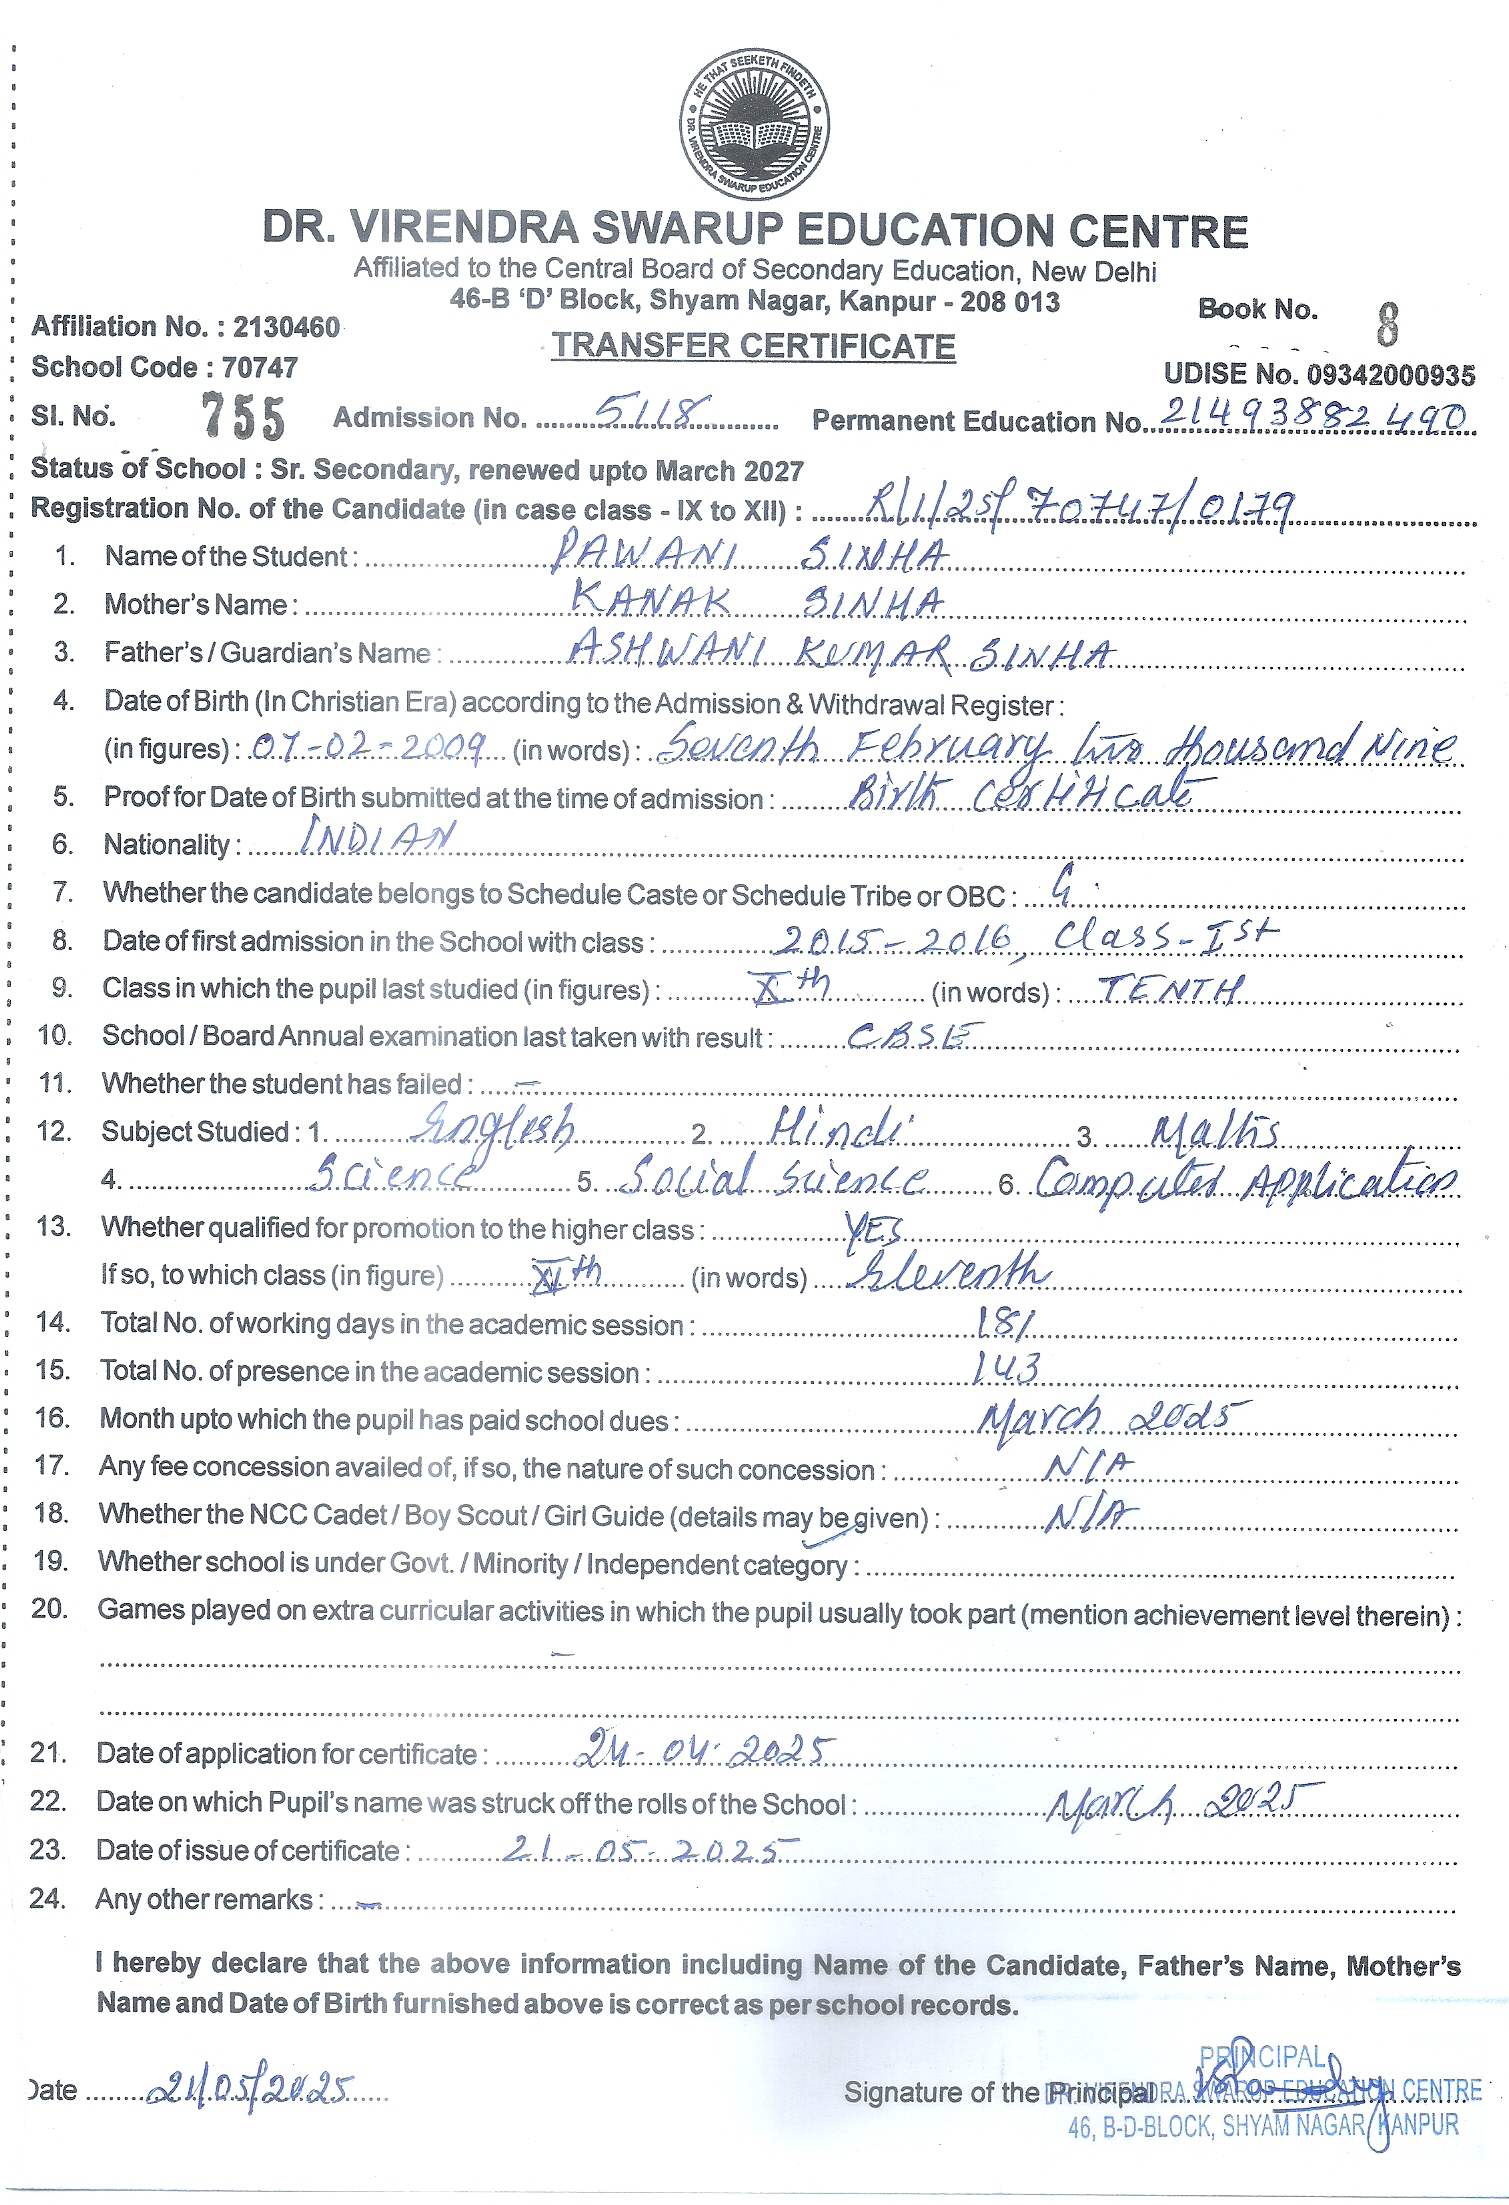 HE THAT SEEKETH FINDETH
DR. VIRENDRA SWARUP EDUCATION CENTRE
DR. VIRENDRA SWARUP EDUCATION CENTRE
Affiliated to the Central Board of Secondary Education, New Delhi
46-B ‘D’ Block, Shyam Nagar, Kanpur - 208 013
Book No. 8
Affiliation No. : 2130460
TRANSFER CERTIFICATE
School Code : 70747
UDISE No. 09342000935
Sl. No. 755 Admission No. 5118 Permanent Education No. 21493882490
Status of School : Sr. Secondary, renewed upto March 2027
Registration No. of the Candidate (in case class - IX to XII) : R/1/25/70747/0179
1. Name of the Student : PAWANI SINHA
2. Mother's Name : KANAK SINHA
3. Father's / Guardian's Name : ASHWANI KUMAR SINHA
4. Date of Birth (In Christian Era) according to the Admission & Withdrawal Register :
(in figures) : 07-02-2009 (in words) : Seventh February two thousand Nine
5. Proof for Date of Birth submitted at the time of admission : Birth certificate
6. Nationality : INDIAN
7. Whether the candidate belongs to Schedule Caste or Schedule Tribe or OBC : G
8. Date of first admission in the School with class : 2015-2016, Class-Ist
9. Class in which the pupil last studied (in figures) : Xth (in words) : TENTH
10. School / Board Annual examination last taken with result : CBSE
11. Whether the student has failed : –
12. Subject Studied : 1. English 2. Hindi 3. Maths
4. Science 5. Social Science 6. Computer Application
13. Whether qualified for promotion to the higher class : YES
If so, to which class (in figure) XIth (in words) Eleventh
14. Total No. of working days in the academic session : 181
15. Total No. of presence in the academic session : 143
16. Month upto which the pupil has paid school dues : March 2025
17. Any fee concession availed of, if so, the nature of such concession : N/A
18. Whether the NCC Cadet / Boy Scout / Girl Guide (details may be given) : N/A
19. Whether school is under Govt. / Minority / Independent category :
20. Games played on extra curricular activities in which the pupil usually took part (mention achievement level therein) :
–
21. Date of application for certificate : 24-04-2025
22. Date on which Pupil's name was struck off the rolls of the School : March 2025
23. Date of issue of certificate : 21-05-2025
24. Any other remarks : –
I hereby declare that the above information including Name of the Candidate, Father's Name, Mother's
Name and Date of Birth furnished above is correct as per school records.
PRINCIPAL
Date 21/05/2025 Signature of the Principal
DR. VIRENDRA SWARUP EDUCATION CENTRE
46, B-D-BLOCK, SHYAM NAGAR, KANPUR